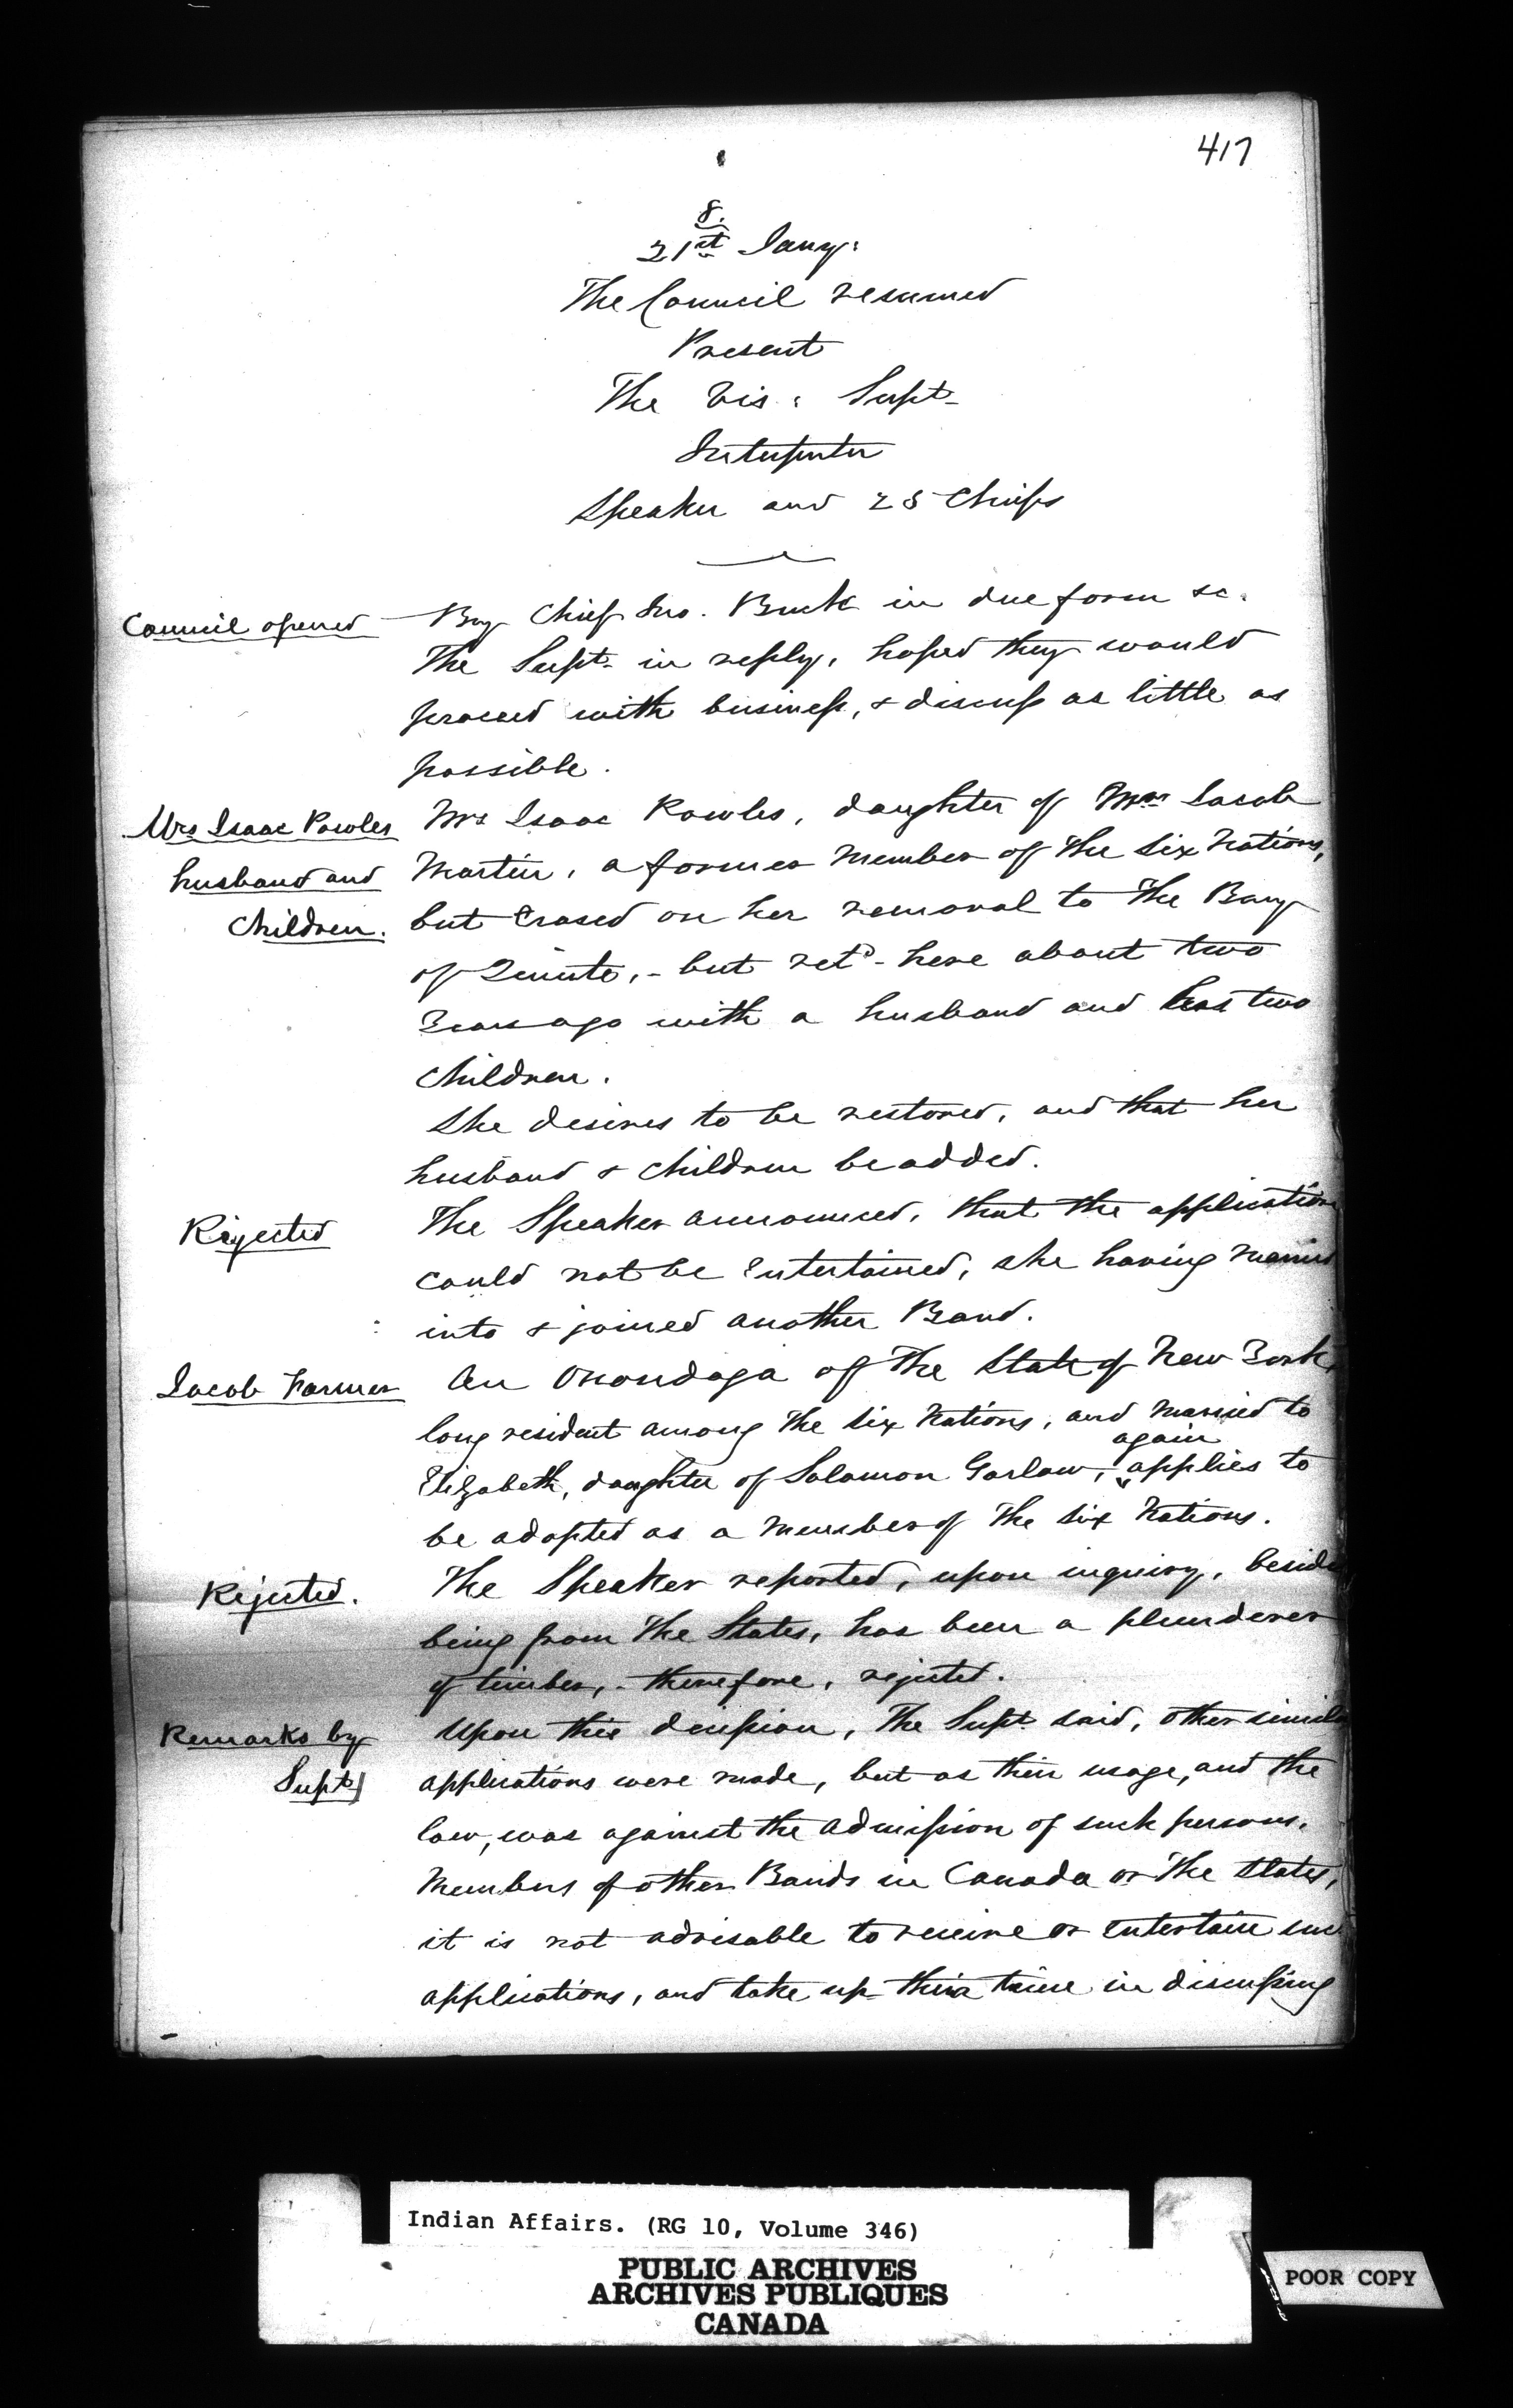 417
8.
21st Jany:
The Council resumed
Present
The Vis: Supt-
Interpreter
Speaker and 25 Chiefs
Council opened By Chief Jno. Buck in due form &c.
The Supt- in reply, hoped they would
proceed with business, & discuss as little as
possible.
Mrs Isaac Powles Mrs Isaac Powles, daughter of Mrs Jacob
husband and Martin, a former member of the Six Nations,
Children. but Erased on her removal to the Bay
of Quinte, - but retd- here about two
Years ago with a husband and has two
Children.
She desires to be restored, and that her
husband & Children be added.
Rejected The Speaker announced, that the application
could not be Entertained, she having married
into & joined another Band.
Jacob Farmer An Onondaga of the State of New York,
long resident among the Six Nations, and married to
again
Elizabeth, daughter of Solomon Garlow, applies to
be adopted as a Member of the Six Nations.
Rejected. The Speaker reported, upon inquiry, beside
being from the States, has been a plunderer
of timber, - therefore, rejected.
Remarks by Upon this decission, the Supt said, other simila
Supt applications were made, but as their usage, and the
law, was against the admission of such persons,
Members of other Bands in Canada or the States,
it is not advisable to receive or Entertain suc
applications, and take up their time in discussing
Indian Affairs. (RG 10, Volume 346)
PUBLIC ARCHIVES
ARCHIVES PUBLIQUES
CANADA
POOR COPY